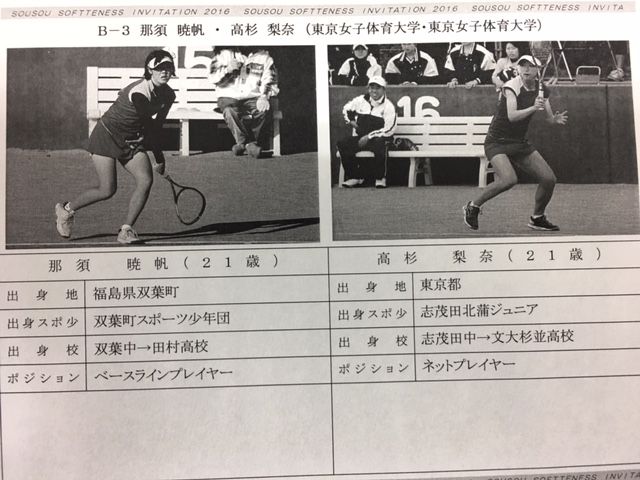 SOUSOU SOFTTENESS INVITATION 2016 SOUSOU SOFTTENESS INVITATION 2016 SOUSOU SOFTTENESS INVITA
B－3 那須 暁帆 ・ 高杉 梨奈 （東京女子体育大学・東京女子体育大学）
15
16
那須 暁帆（21歳）
出身地 福島県双葉町
出身スポ少 双葉町スポーツ少年団
出身校 双葉中→田村高校
ポジション ベースラインプレイヤー
高杉 梨奈（21歳）
出身地 東京都
出身スポ少 志茂田北蒲ジュニア
出身校 志茂田中→文大杉並高校
ポジション ネットプレイヤー
SOUSOU SOFTTENESS INVITA